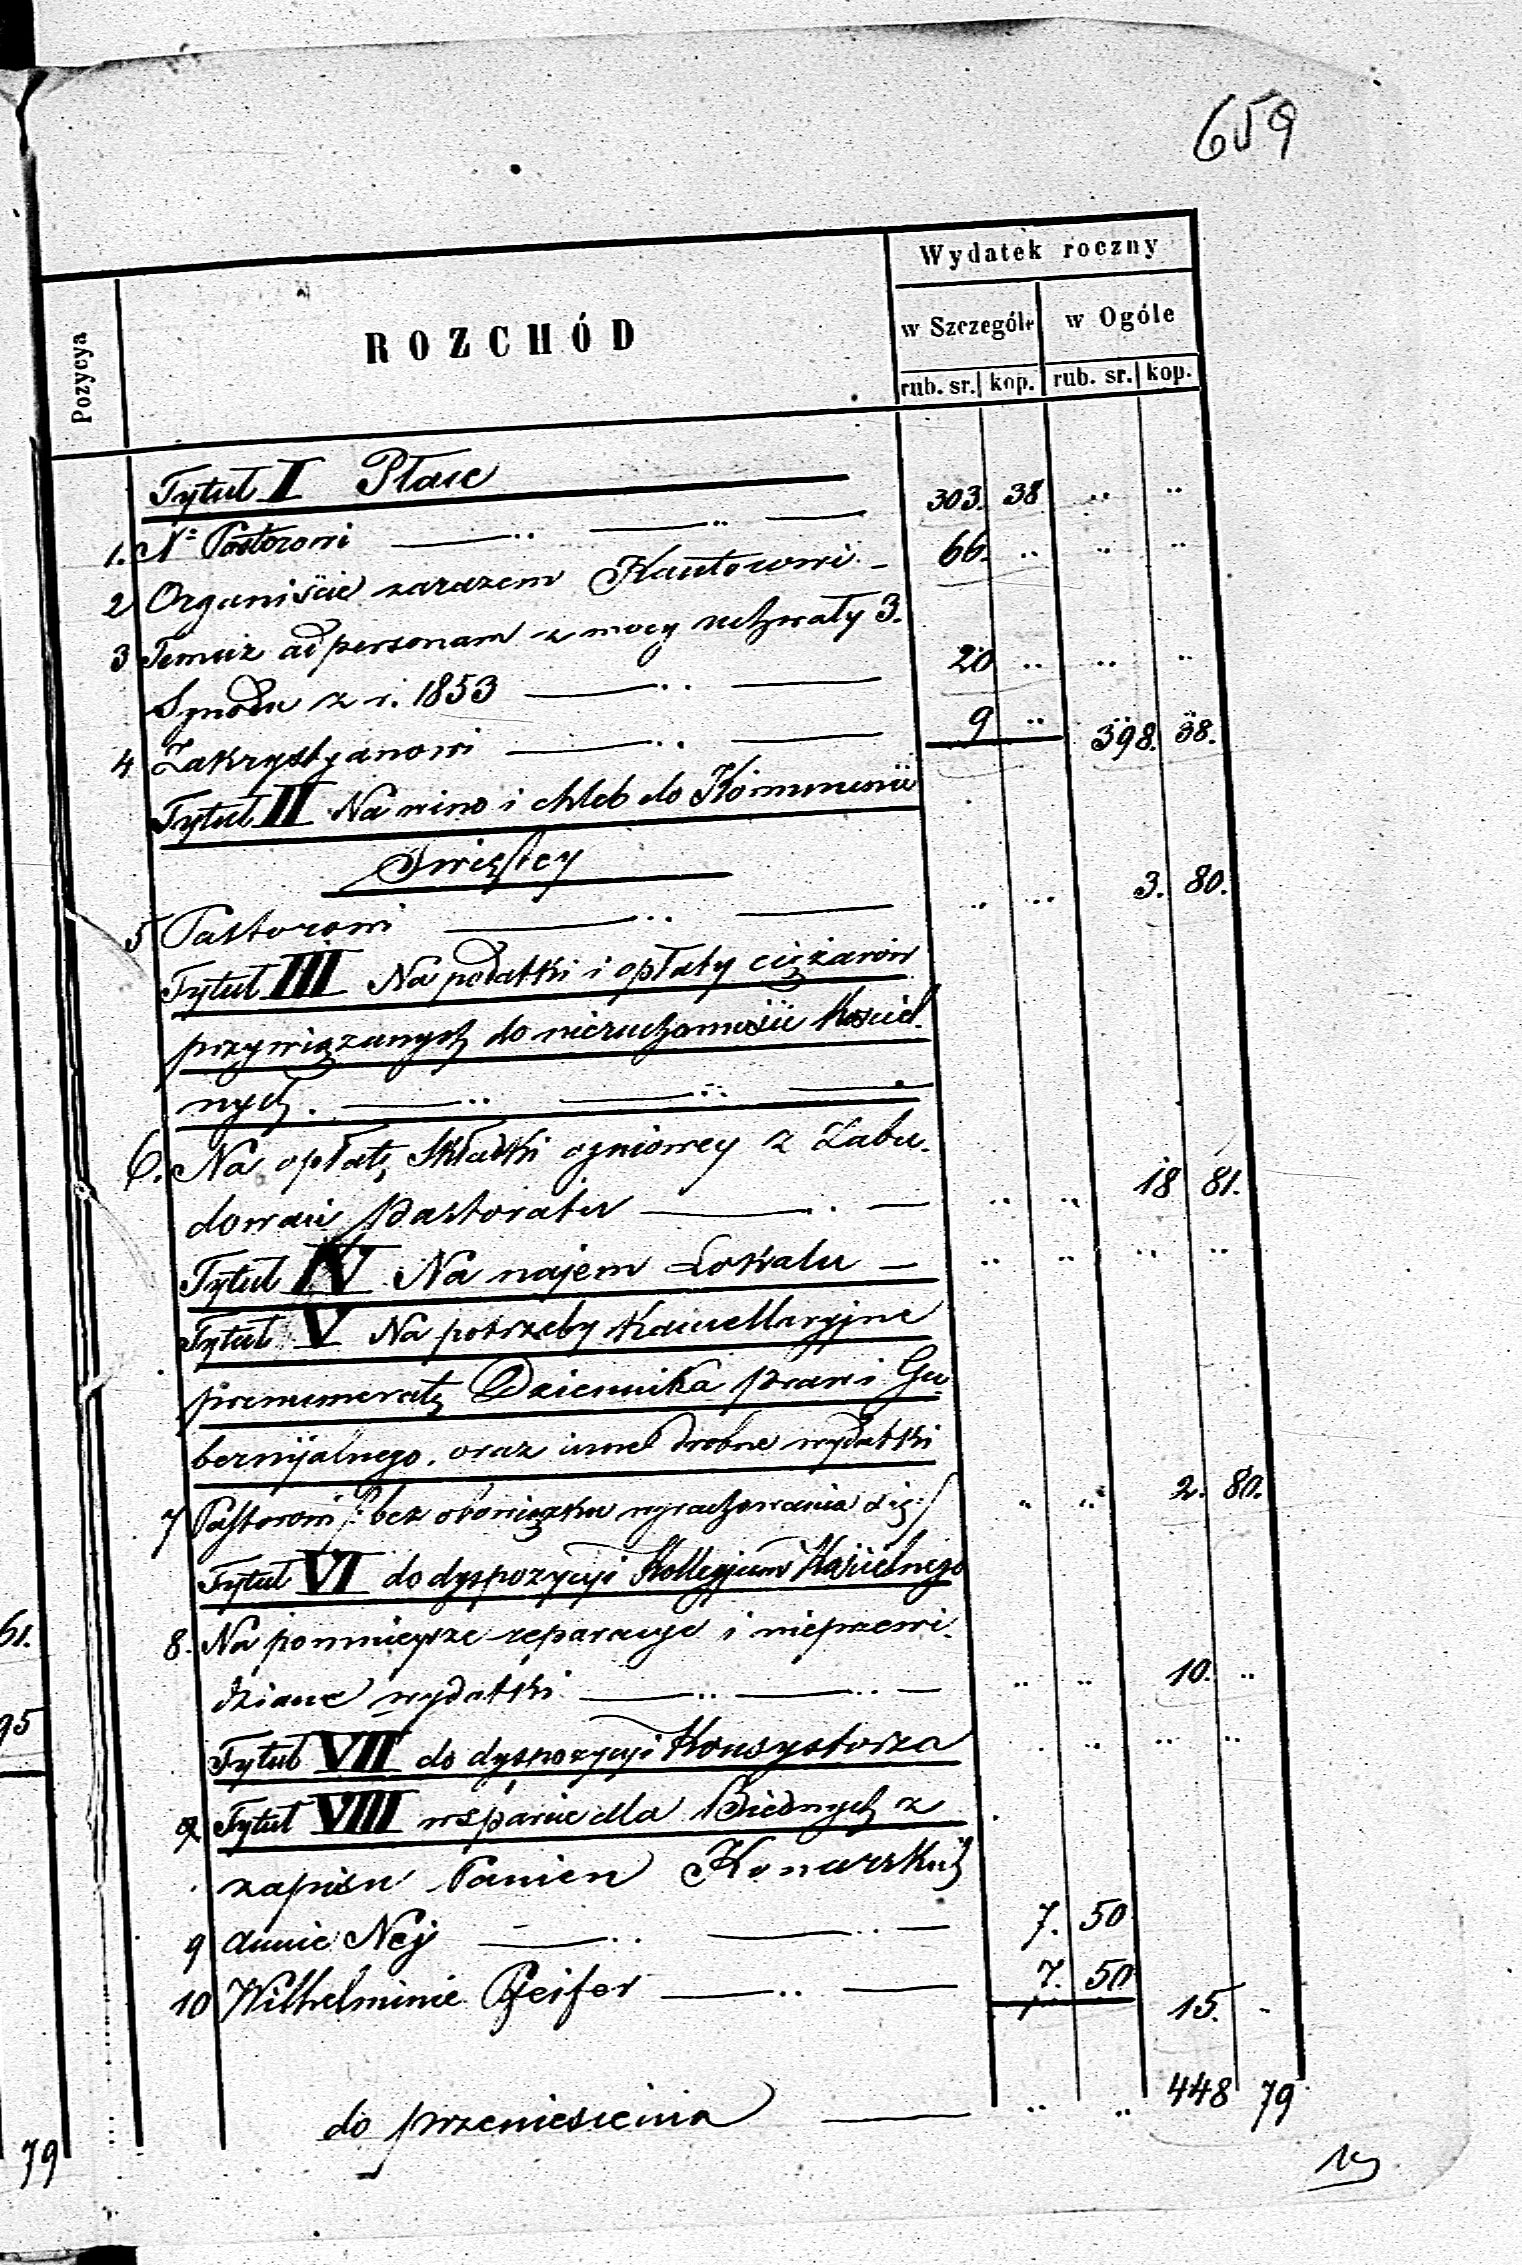 659
Wydatek roczny
Pozycya
ROZCHÓD
w Szczególe w Ogóle
rub. sr. kop. rub. sr. kop.
Tytuł I Płace
1. X. Pastorowi 303. 38 .. ..
2 Organiście zarazem Kantorowi 66. .. .. ..
3 Temuż ad personam z mocy uchwały 3.
Synodu z r. 1853 20 .. .. ..
4 Zakrystyanowi 9 .. 398. 38.
Tytuł II Na wino i chleb do Kommunii
Swiętey
5 Pastorowi .. .. 3. 80.
Tytuł III Na podatki i opłaty ciężarów
przywiązanych do nieruchomości Kościel-
nych.
6. Na opłatę składki ogniowey z Zabu-
dowań Pastoratu .. .. 18 81.
Tytuł IV Na najem Lokalu .. .. .. ..
Tytuł V Na potrzeby Kancellaryjne
prenumeratę Dziennika praw i Gu-
bernijalnego. oraz inne drobne wydatki
7 Pastorowi /: bez obowiązku wyrachowania się :/ .. .. 2. 80.
Tytuł VI do dyspozycyi Kollegjum Kościelnego
8. Na pomnieysze reparacye i nieprzewi-
dziane wydatki .. .. 10. ..
Tytuł VII do dyspozycyi Konsystorza .. .. ..
Tytuł VIII wsparcie dla Biednych z
zapisu Panien Konarskich
9 Annie Nej 7. 50
10 Wilhelminie Pfeifer 7. 50 15. -
do przeniesienia .. .. 448 79
61.
95
79